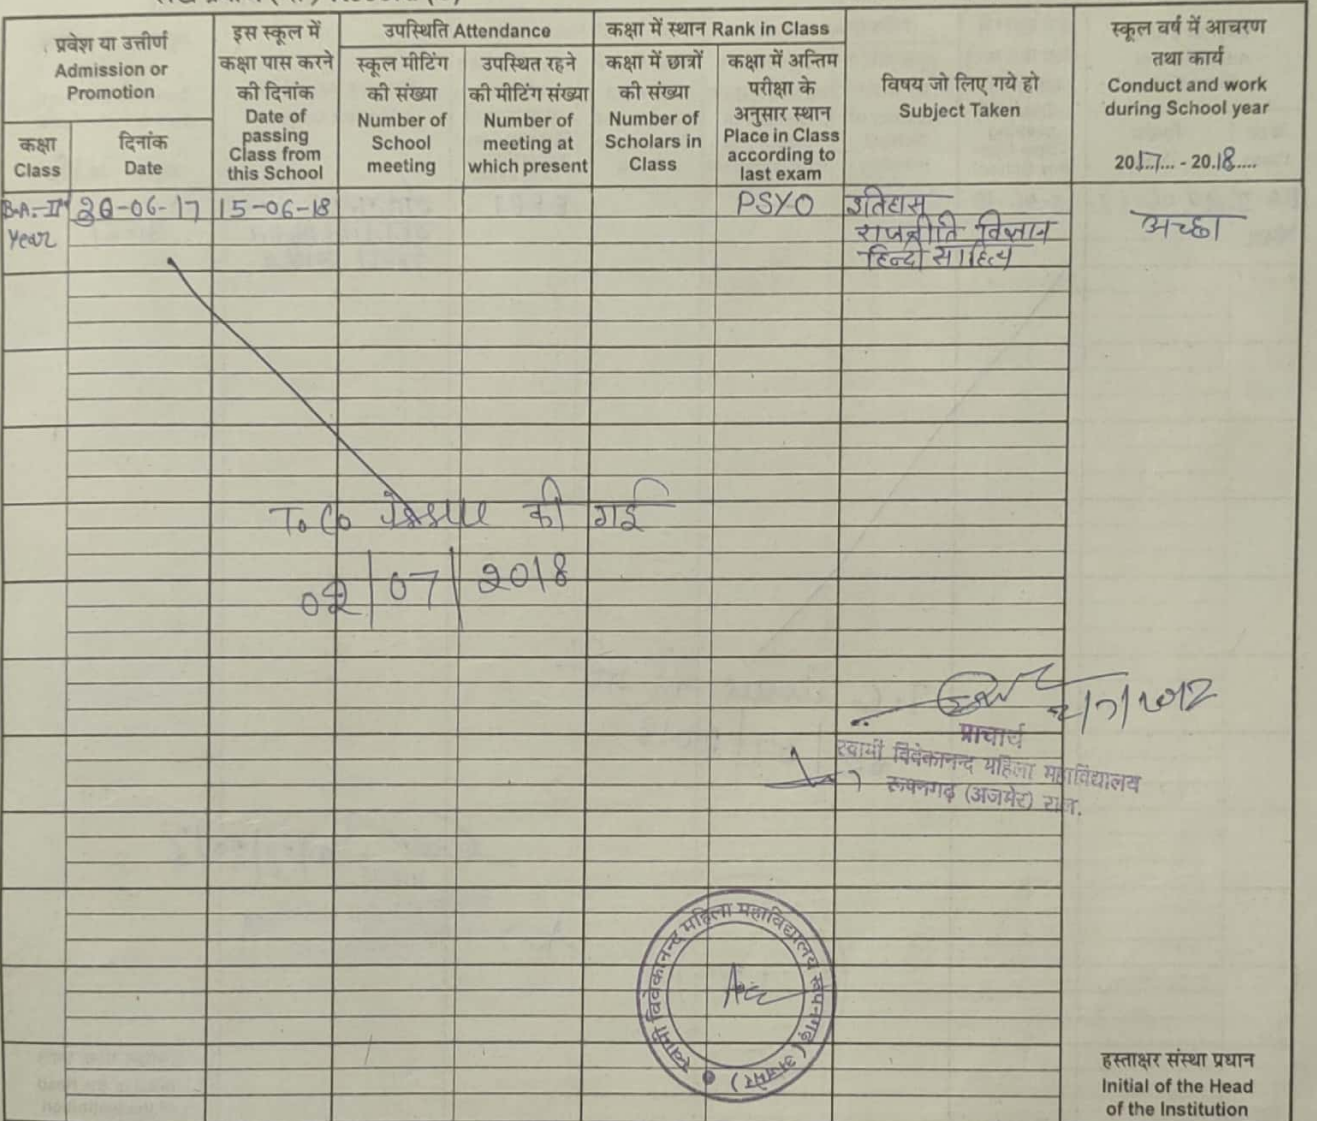 प्रवेश या उत्तीर्ण
Admission or
Promotion
कक्षा
Class
दिनांक
Date
इस स्कूल में
कक्षा पास करने
की दिनांक
Date of
passing
Class from
this School
उपस्थिति Attendance
स्कूल मीटिंग
की संख्या
Number of
School
meeting
उपस्थित रहने
की मीटिंग संख्या
Number of
meeting at
which present
कक्षा में स्थान Rank in Class
कक्षा में छात्रों
की संख्या
Number of
Scholars in
Class
कक्षा में अन्तिम
परीक्षा के
अनुसार स्थान
Place in Class
according to
last exam
विषय जो लिए गये हो
Subject Taken
स्कूल वर्ष में आचरण
तथा कार्य
Conduct and work
during School year
2017... - 2018....
B.A.-II
Year
20-06-17
15-06-18
PSYO
इतिहास
राजनीति विज्ञान
हिन्दी साहित्य
अच्छा
की गई
02/07/2018
प्राचार्य
स्वामी विवेकानन्द महिला महाविद्यालय
रूपनगढ़ (अजमेर) राज.
स्वामी विवेकानन्द महिला महाविद्यालय रूपनगढ़ (अजमेर)
हस्ताक्षर संस्था प्रधान
Initial of the Head
of the Institution